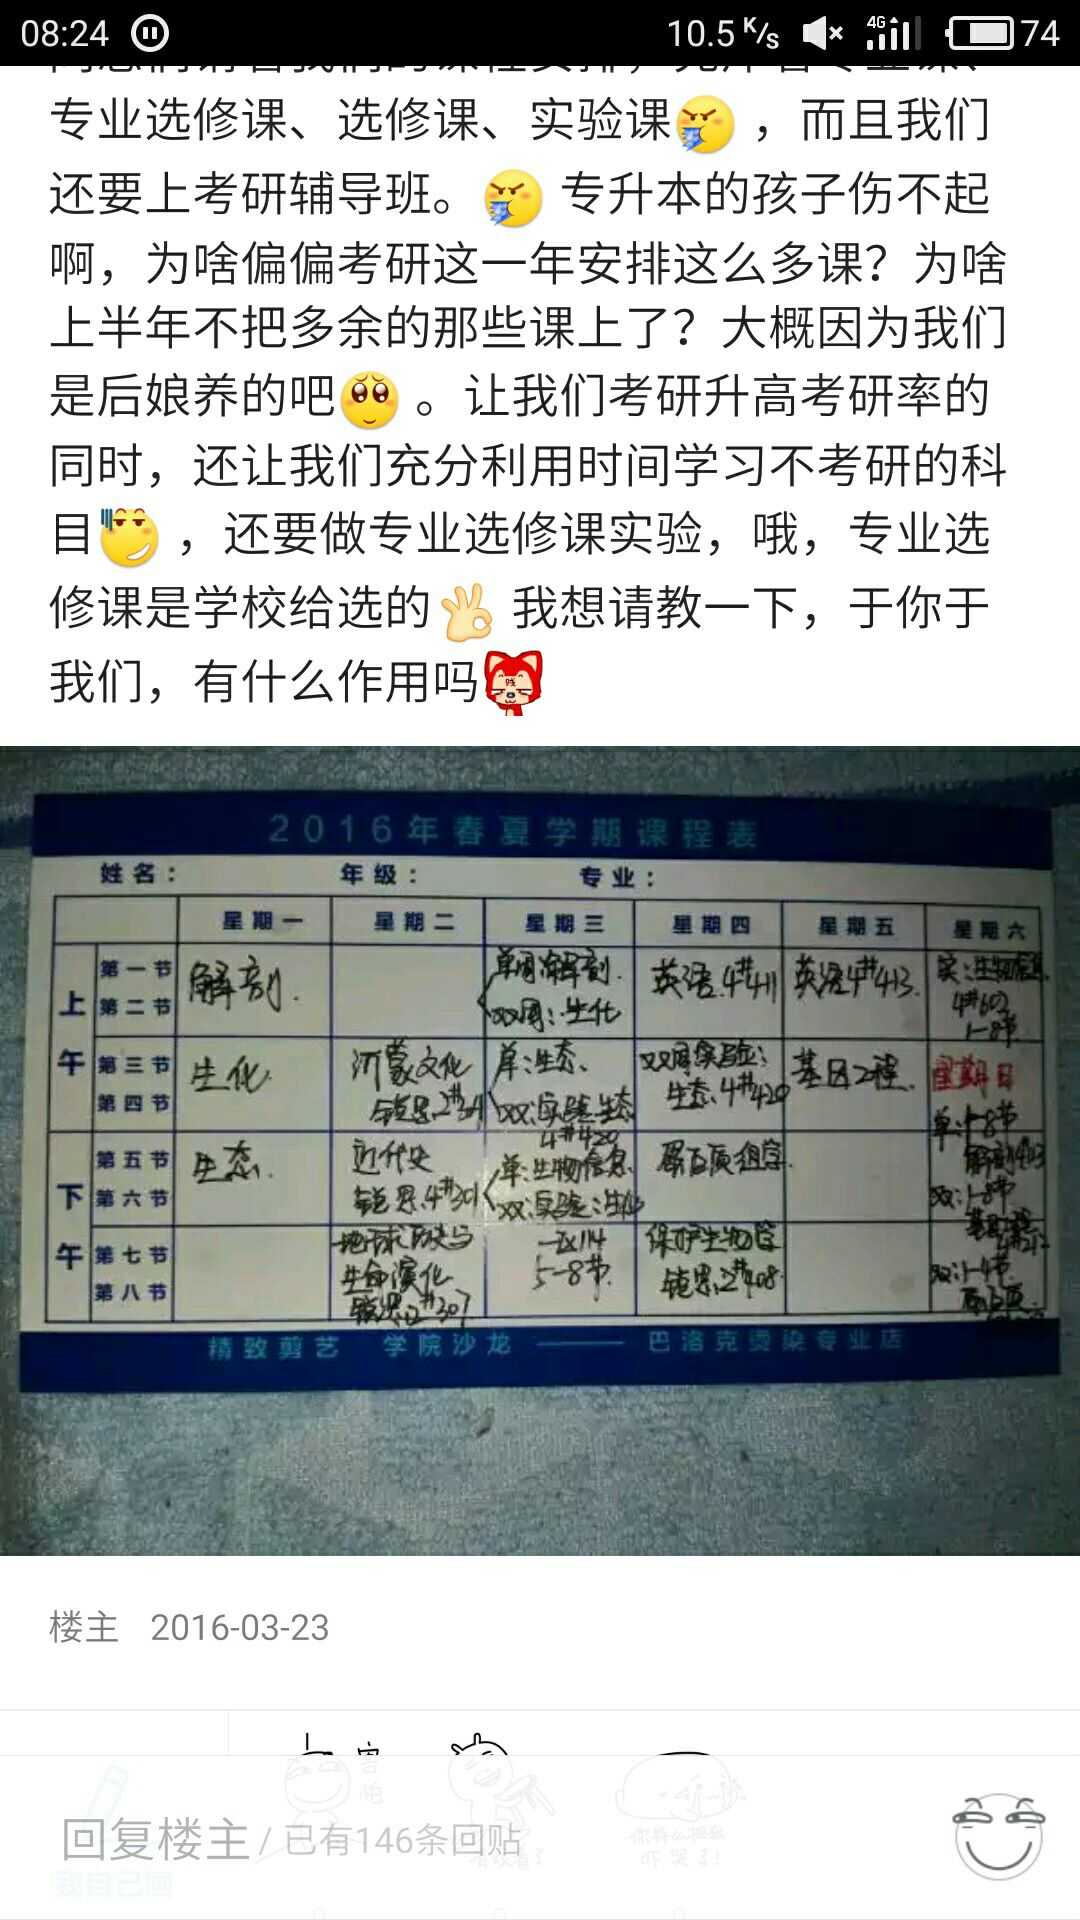 08:24
10.5 K/s
4G
74
专业选修课、选修课、实验课，而且我们
还要上考研辅导班。专升本的孩子伤不起
啊，为啥偏偏考研这一年安排这么多课？为啥
上半年不把多余的那些课上了？大概因为我们
是后娘养的吧。让我们考研升高考研率的
同时，还让我们充分利用时间学习不考研的科
目，还要做专业选修课实验，哦，专业选
修课是学校给选的 我想请教一下，于你于
我们，有什么作用吗
2016年春夏学期课程表
姓名： 年级： 专业：
星期一 星期二 星期三 星期四 星期五 星期六
上午
第一节
第二节
解剖.
单周:解剖.
双周:生化
英语.4#411
英语4#413.
实:生物信息
1-8节
第三节
第四节
生化.
沂蒙文化
单:生态、
双:实验生态
4#420
双周实验:
生态.4#420
基因工程.
星期日
单:1-8节
下午
第五节
第六节
生态.
近代史
4#301
单:生物信息
双:实验:生化
蛋白质组学.
双:1-8节
第七节
第八节
地球历史与
生命演化
2#307
5-8节.
保护生物学
2#408
双:1-4节
精致剪艺 学院沙龙 —— 巴洛克烫染专业店
楼主 2016-03-23
回复楼主 / 已有146条回贴